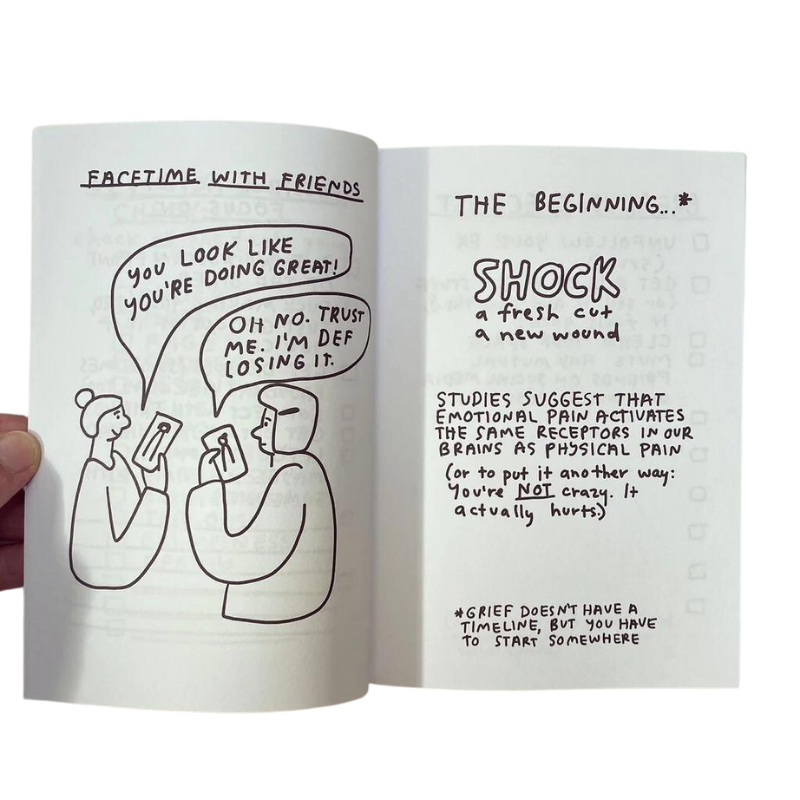 FACETIME WITH FRIENDS
YOU LOOK LIKE
YOU'RE DOING GREAT!
OH NO. TRUST
ME. I'M DEF
LOSING IT.
THE BEGINNING...*
SHOCK
a fresh cut
a new wound
STUDIES SUGGEST THAT
EMOTIONAL PAIN ACTIVATES
THE SAME RECEPTORS IN OUR
BRAINS AS PHYSICAL PAIN
(or to put it another way:
You're NOT crazy. It
actually hurts.)
*GRIEF DOESN'T HAVE A
TIMELINE, BUT YOU HAVE
TO START SOMEWHERE